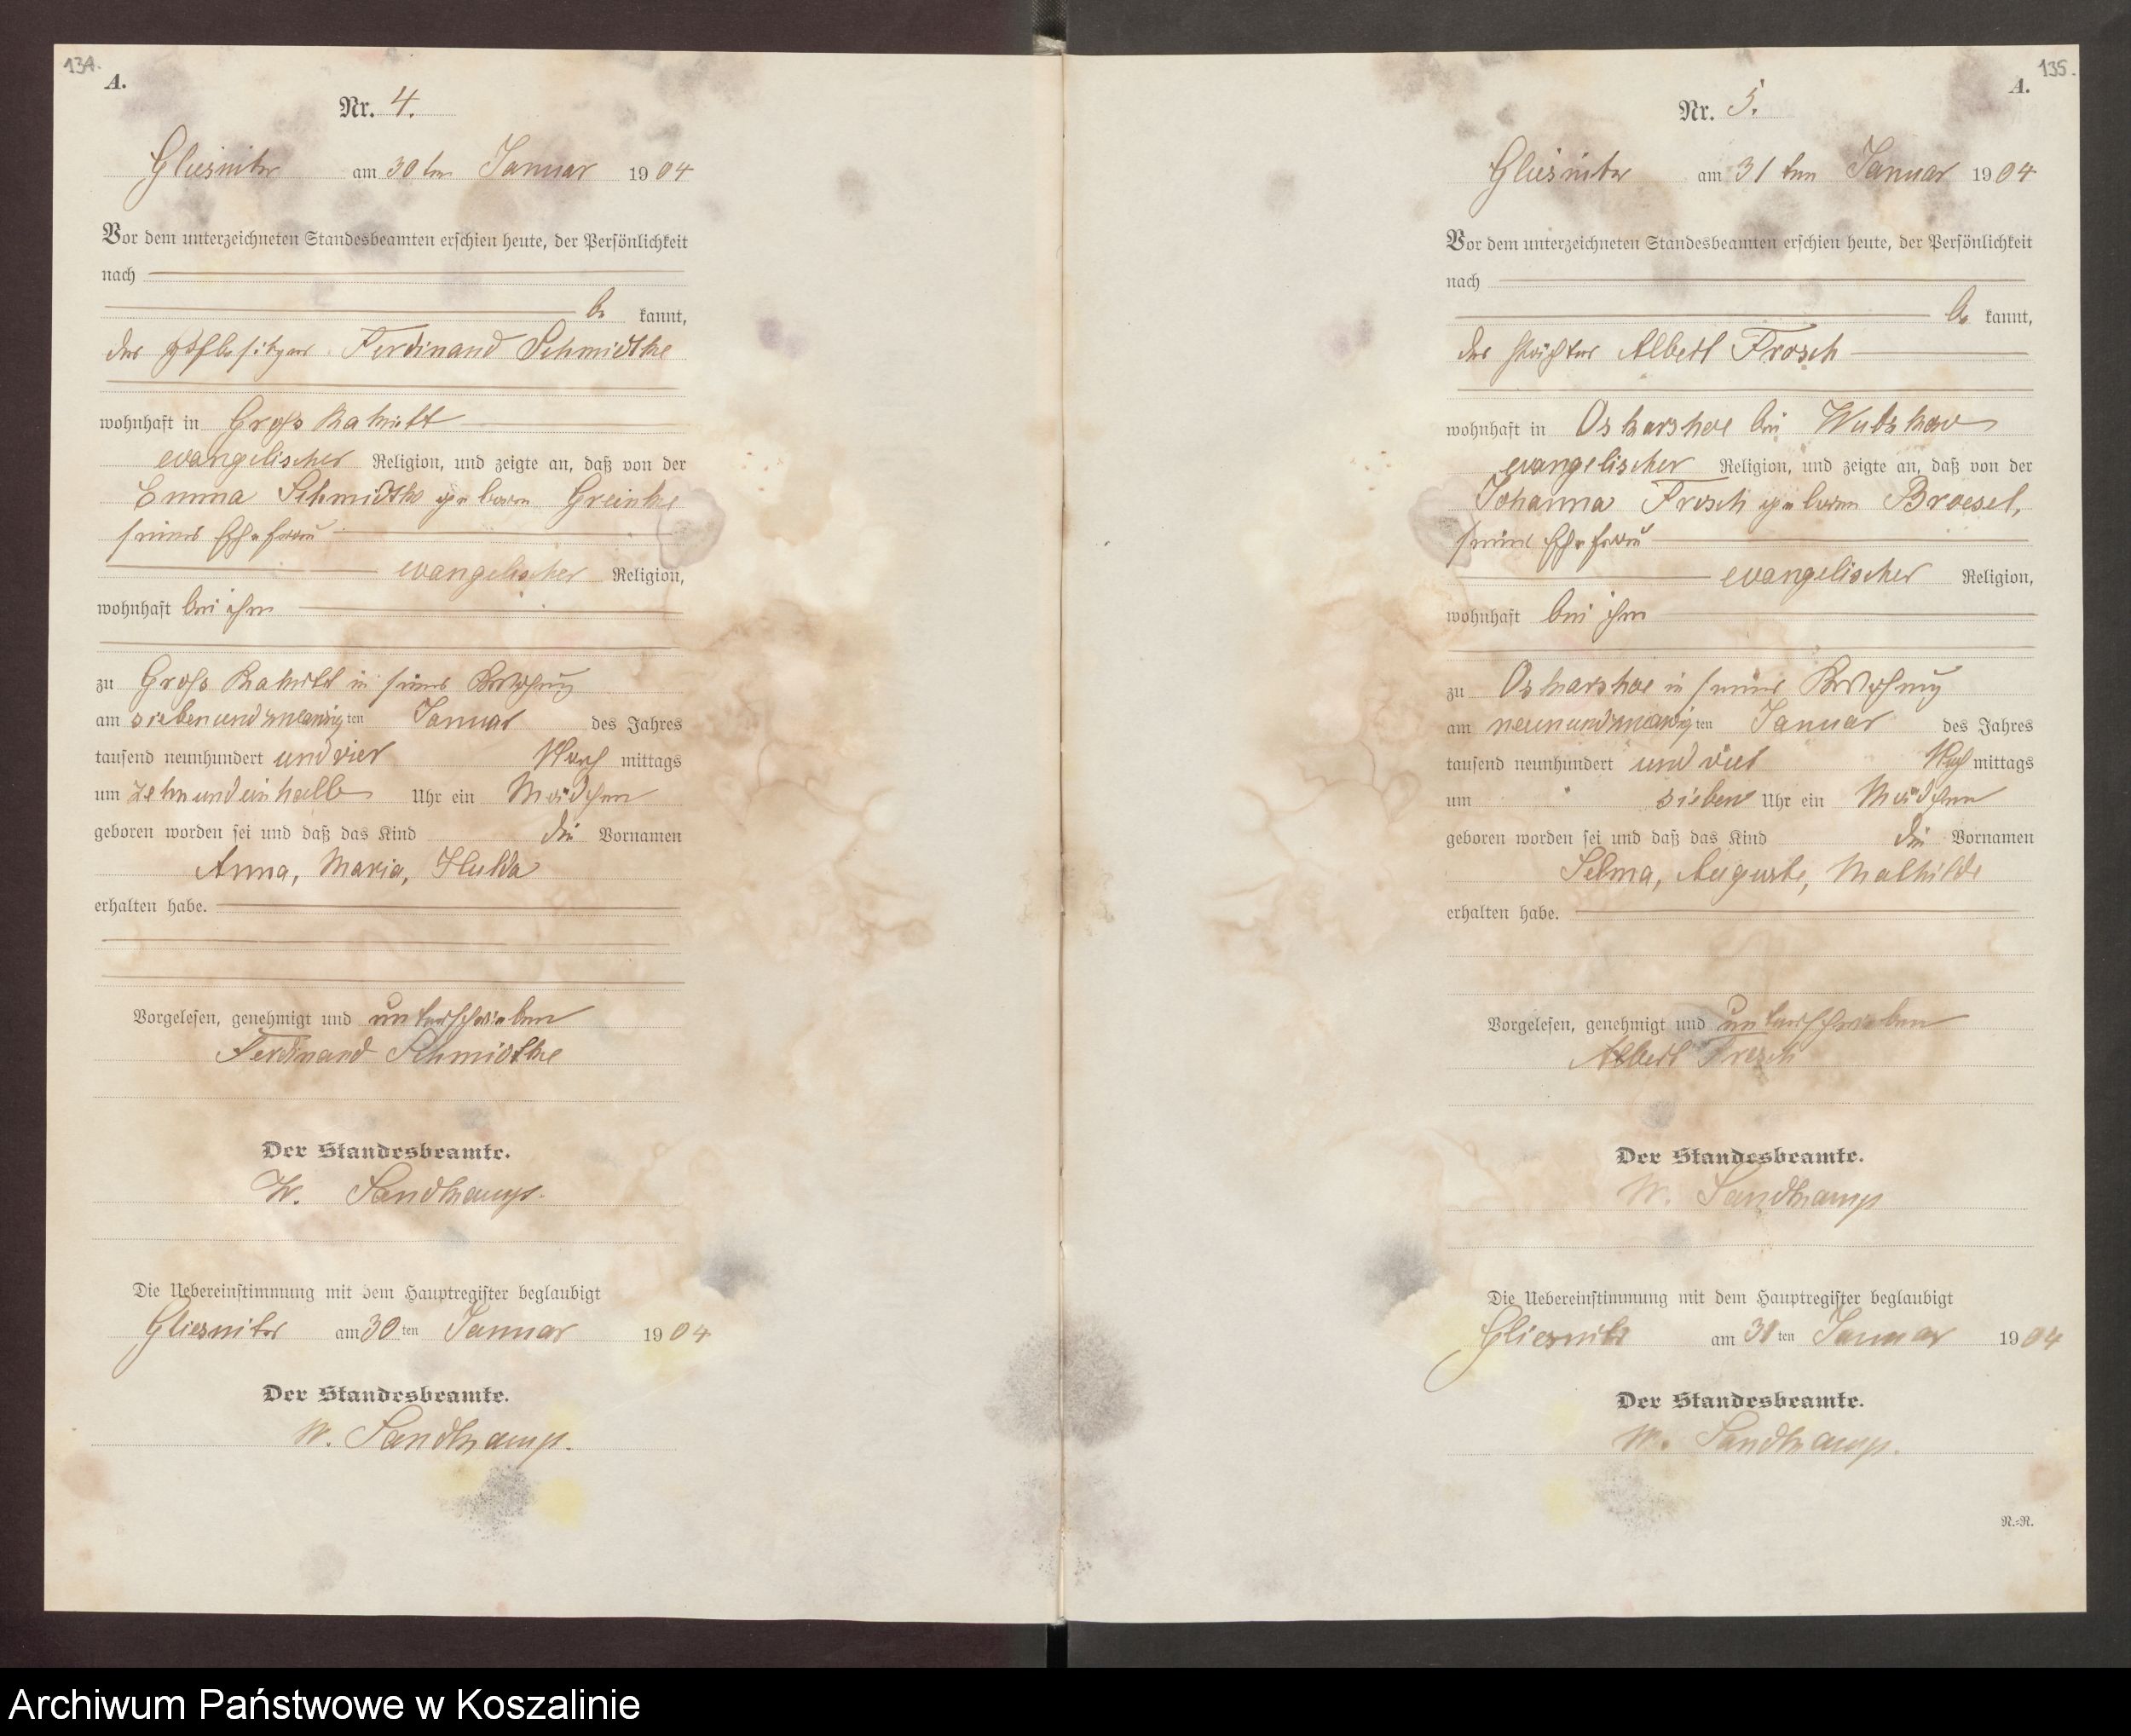 134.
A.
Nr. 4.
Gliesnitz am 30ten Januar 1904
Vor dem unterzeichneten Standesbeamten erschien heute, der Persönlichkeit
nach
be kannt,
der Ferdinand Schmidtke
wohnhaft in Gross Rakitt
evangelischer Religion, und zeigte an, daß von der
Emma Schmidtke geboren Greinke
seiner Ehefrau
evangelischer Religion,
wohnhaft bei ihm
zu Gross Rakitt in seiner Wohnung
am siebenundzwanzigten Januar des Jahres
tausend neunhundert und vier Nach mittags
um zehnundeinhalb Uhr ein Mädchen
geboren worden sei und daß das Kind die Vornamen
Anna, Maria, Hulda
erhalten habe.
Vorgelesen, genehmigt und unterschrieben
Ferdinand Schmidtke
Der Standesbeamte.
W. Sandkamp.
Die Uebereinstimmung mit dem Hauptregister beglaubigt
Gliesnitz am 30ten Januar 1904
Der Standesbeamte.
W. Sandkamp.
135.
A.
Nr. 5.
Gliesnitz am 31ten Januar 1904
Vor dem unterzeichneten Standesbeamten erschien heute, der Persönlichkeit
nach
be kannt,
der Pächter Albert Frosch
wohnhaft in Oskarshoe bei Wutzkow
evangelischer Religion, und zeigte an, daß von der
Johanna Frosch geboren Broesel,
seiner Ehefrau
evangelischer Religion,
wohnhaft bei ihm
zu Oskarshoe in seiner Wohnung
am neunundzwanzigten Januar des Jahres
tausend neunhundert und vier Nach mittags
um sieben Uhr ein Mädchen
geboren worden sei und daß das Kind die Vornamen
Selma, Auguste, Mathilde
erhalten habe.
Vorgelesen, genehmigt und unterschrieben
Albert Frosch
Der Standesbeamte.
W. Sandkamp
Die Uebereinstimmung mit dem Hauptregister beglaubigt
Gliesnitz am 31ten Januar 1904
Der Standesbeamte.
W. Sandkamp.
N.=R.
Archiwum Państwowe w Koszalinie